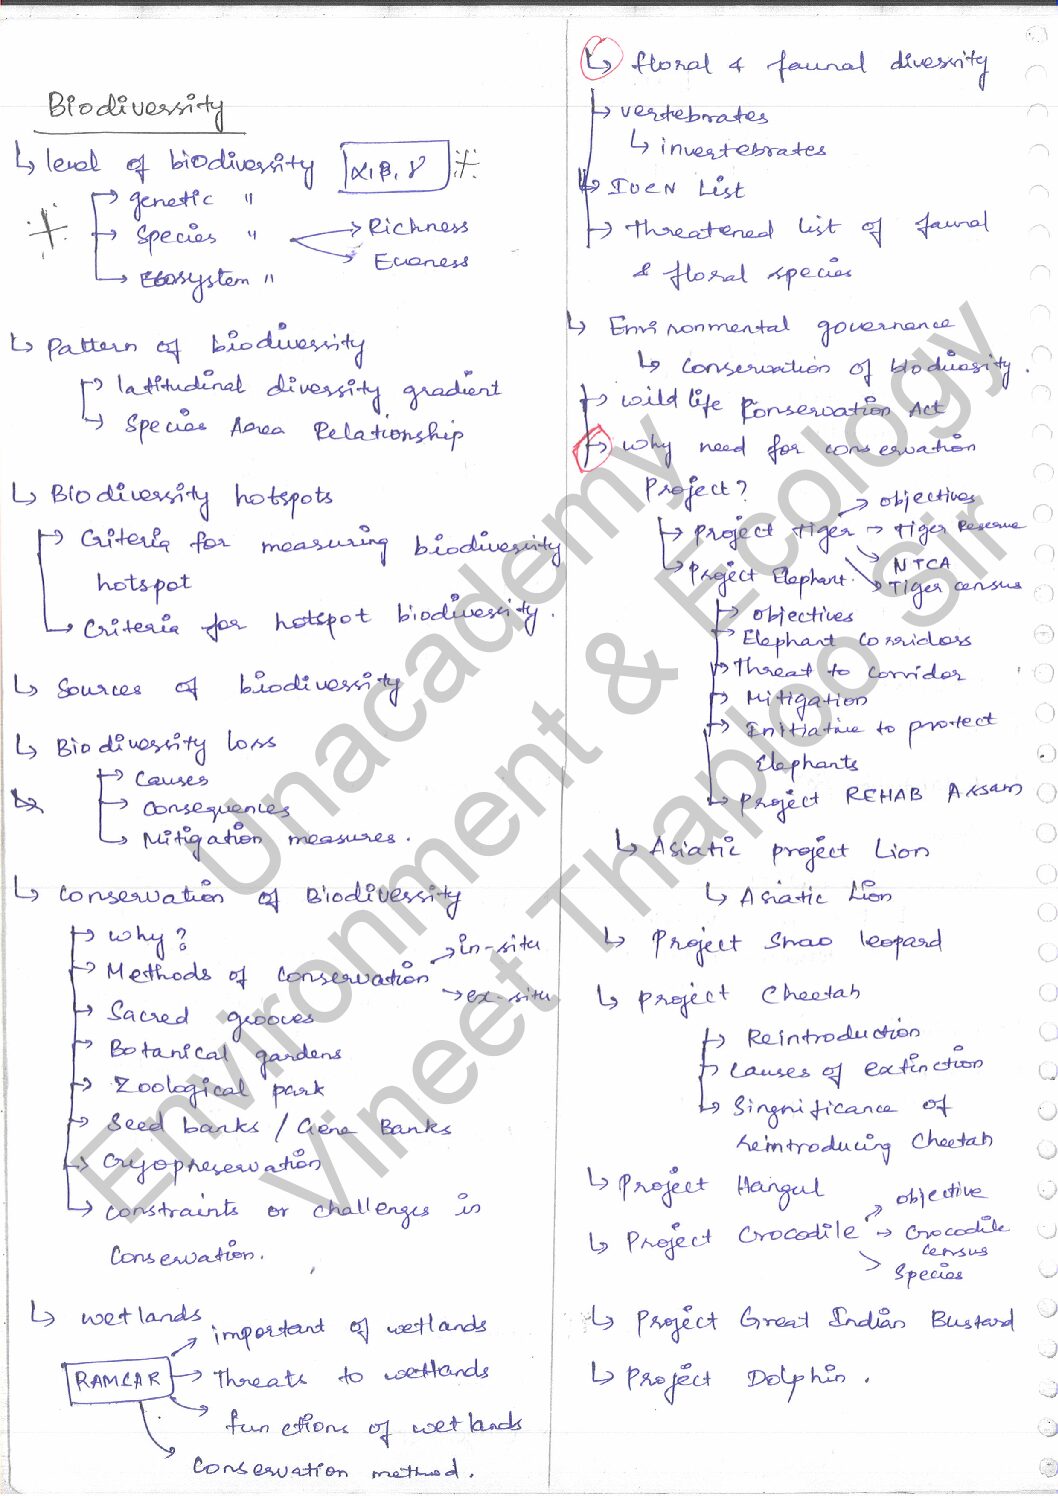 Biodiversity
↳ level of biodiversity α, β, γ
genetic "
Species " → Richness
→ Eveness
Ecosystem "
↳ Pattern of biodiversity
→ latitudinal diversity gradient
→ Species Area Relationship
↳ Biodiversity hotspots
→ Criteria for measuring biodiversity
hotspot
→ Criteria for hotspot biodiversity.
↳ Sources of biodiversity
↳ Biodiversity loss
→ Causes
→ Consequences
→ Mitigation measures.
↳ Conservation of Biodiversity
→ Why?
→ Methods of conservation → in-situ
→ ex-situ
→ Sacred grooves
→ Botanical gardens
→ Zoological park
→ Seed banks / Gene Banks
→ Cryopreservation
→ Constraints or challenges in
Conservation.
↳ wetlands
RAMCAR → important of wetlands
→ Threats to wetlands
→ functions of wetlands
Conservation method.
↳ floral & faunal diversity
→ vertebrates
↳ invertebrates
→ IUCN List
→ Threatened list of faunal
& floral species
↳ Environmental governence
↳ Conservation of biodiversity.
→ Wild life Conservation Act
→ Why need for conservation
Project?
→ Project Tiger → objectives
→ Tiger Reserve
→ NTCA
→ Tiger census
→ Project Elephant
→ objectives
→ Elephant Corridors
→ Threat to corridor
→ Mitigation
→ Initiative to protect
Elephants
→ Project REHAB Assam
↳ Asiatic project Lion
↳ Asiatic Lion
↳ Project Snao leopard
↳ Project Cheetah
→ Reintroduction
→ Causes of extinction
→ Singnificance of
reintroducing Cheetah
↳ Project Hangul
↳ Project Crocodile → objective
→ Crocodile
census
→ Species
↳ Project Great Indian Bustard
↳ Project Dolphin.
Unacademy
Environment & Ecology
Vineet Thaploo Sir